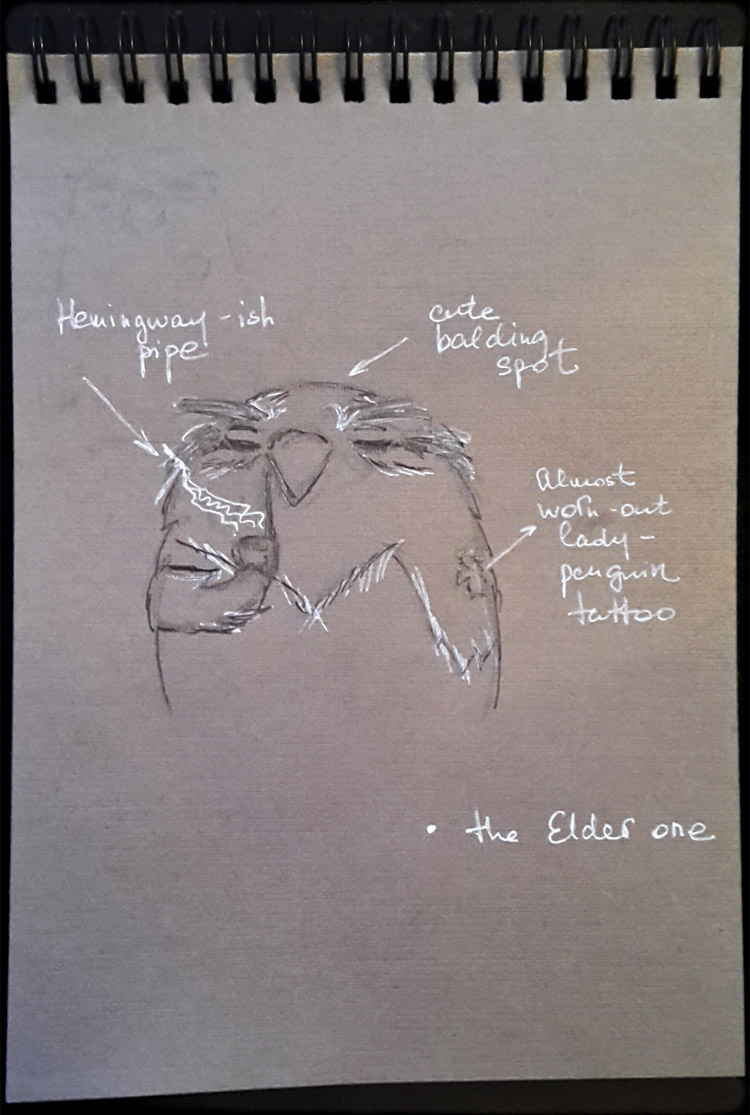 Hemingway-ish
pipe
cute
balding
spot
Almost
worn-out
lady-
penguin
tattoo
• the Elder one